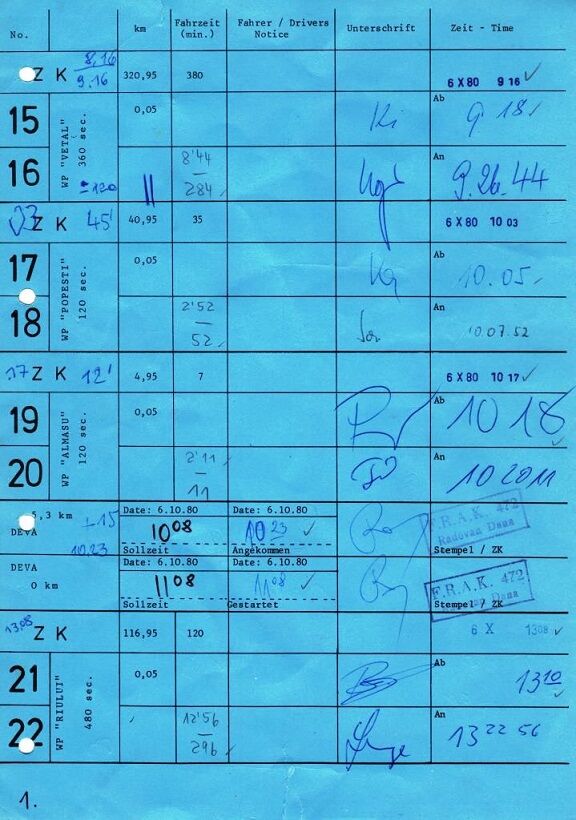 No. km Fahrzeit (min.) Fahrer / Drivers Notice Unterschrift Zeit - Time
8,16
Z K 9.16 320,95 380 6 X 80 9 16
15 WP "VETAL" 360 sec. 0,05 Ab 9 18
16 120 8'44 284 An 9.26.44
Z K 45' 40,95 35 6 X 80 10 03
17 WP "POPESTI" 120 sec. 0,05 Ab 10.05
18 2'52 52 An 10.07.52
17 Z K 12' 4,95 7 6 X 80 10 17
19 WP "ALMASU" 120 sec. 0,05 Ab 10 18
20 2'11 11 An 10 20 11
5,3 km ±15 Date: 6.10.80 Date: 6.10.80 F.R.A.K. 472
DEVA 10 08 10 23 Radovan Dana
10.23 Sollzeit Angekommen Stempel / ZK
DEVA Date: 6.10.80 Date: 6.10.80 F.R.A.K. 472
0 km 11 08 11 08 Dana
Sollzeit Gestartet Stempel / ZK
13.08 Z K 116,95 120 6 X 1308
21 WP "RIULUI" 480 sec. 0,05 Ab 13 10
22 12'56 296 An 13 22 56
1.